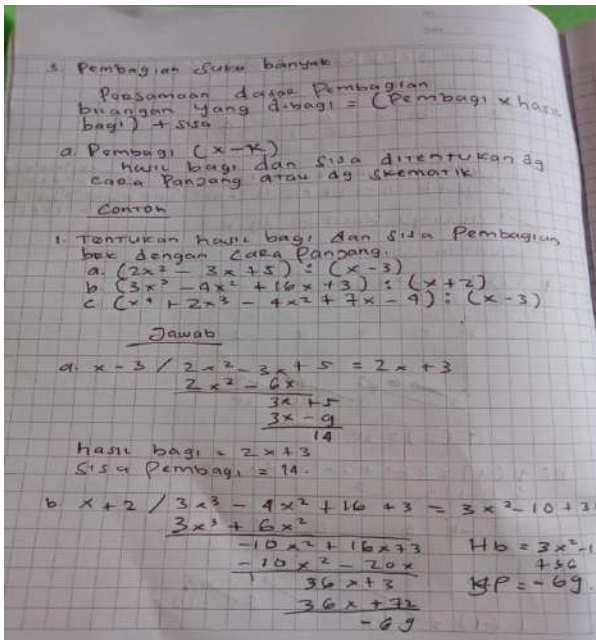 3. Pembagian Suku banyak
Persamaan dasar Pembagian
bilangan yang dibagi = (Pembagi x hasil
bagi) + sisa
a. Pembagi (x-k)
hasil bagi dan sisa ditentukan dg
cara Panjang atau dg skematik
Contoh
1. Tentukan hasil bagi dan sisa Pembagian
bek dengan cara Panjang.
a. (2x² - 3x + 5) : (x - 3)
b. (3x³ - 4x² + 16x + 3) : (x + 2)
c. (x⁴ + 2x³ - 4x² + 7x - 4) : (x - 3)
Jawab
a. x - 3 / 2x² - 3x + 5 = 2x + 3
2x² - 6x
3x + 5
3x - 9
14
hasil bagi = 2x + 3
Sisa Pembagi = 14.
b. x + 2 / 3x³ - 4x² + 16 + 3 = 3x² - 10 + 3
3x³ + 6x²
-10x² + 16x + 3 Hb = 3x² - 1
-10x² - 20x + 36
36x + 3 HP = -69.
36x + 72
-69